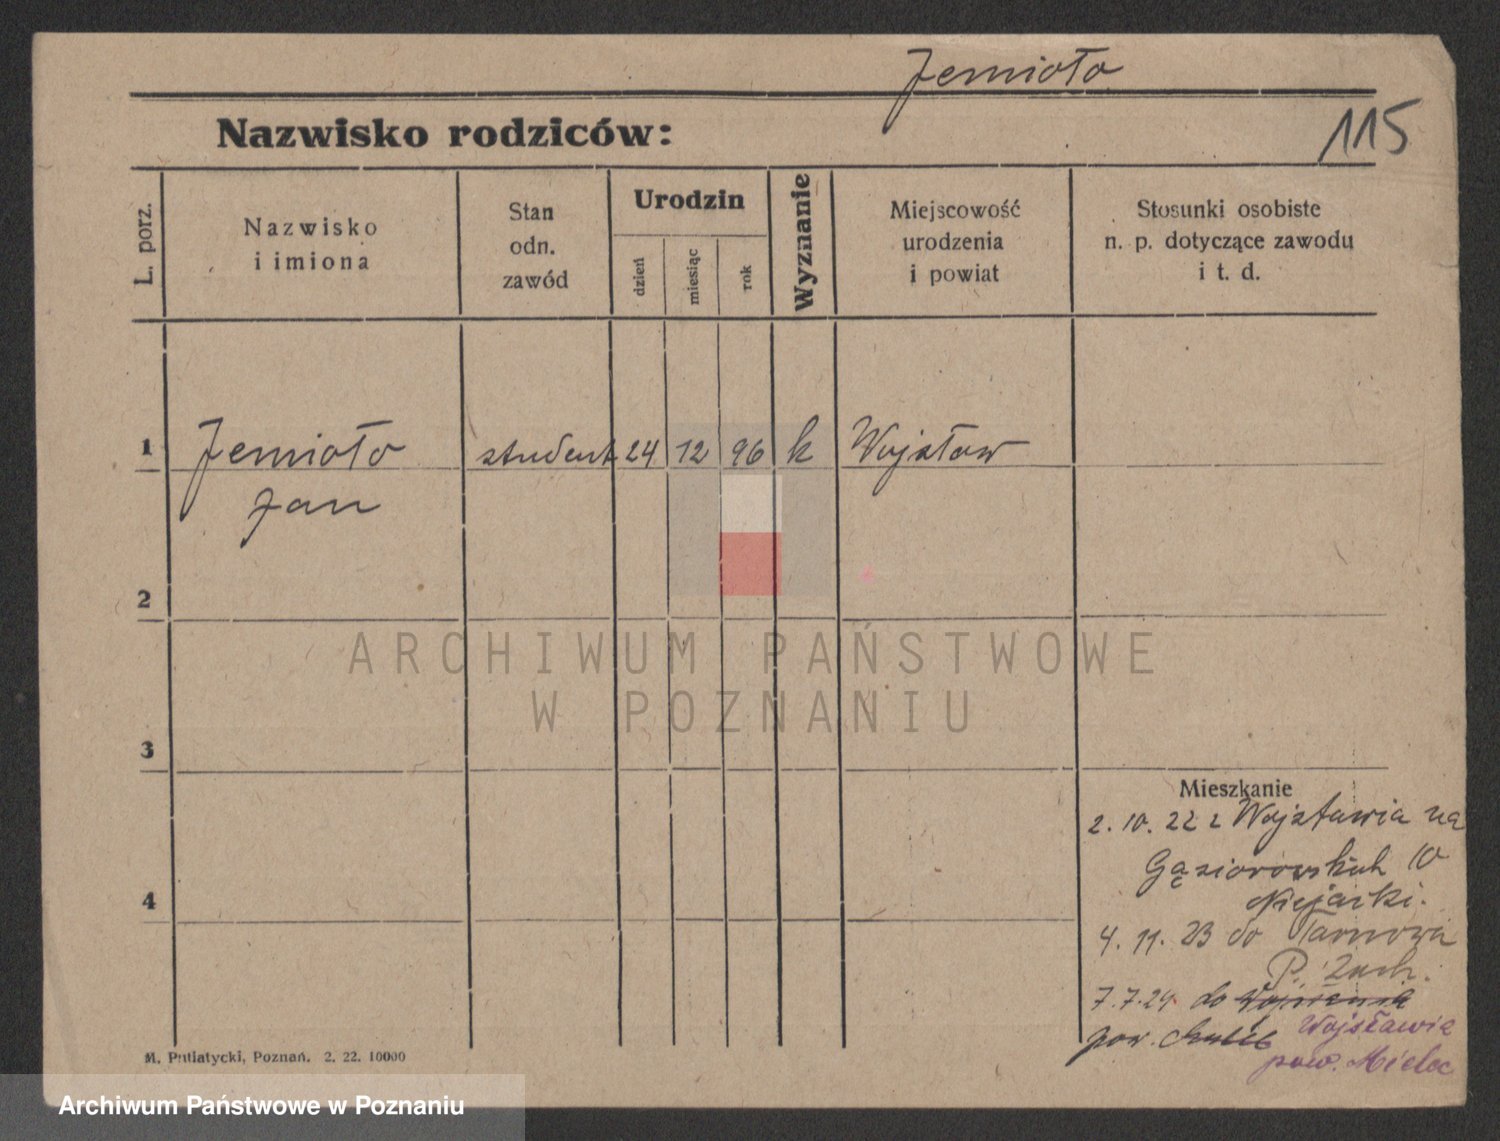 Jemioło
115
Nazwisko rodziców:
L. porz.
Nazwisko
i imiona
Stan
odn.
zawód
Urodzin
dzień
miesiąc
rok
Wyznanie
Miejscowość
urodzenia
i powiat
Stosunki osobiste
n. p. dotyczące zawodu
i t. d.
1 Jemioło student 24 12 96 k Wojsław
Jan
2
ARCHIWUM PAŃSTWOWE
W POZNANIU
3
Mieszkanie
2. 10. 22 z Wojsławia na
Gąsiorowskich 10
4
4. 11. 23 do Tarnowa
P.
7.7.24 do
pow. Wojsławia
pow. Mielec
M. Putiatycki, Poznań. 2. 22. 10000
Archiwum Państwowe w Poznaniu